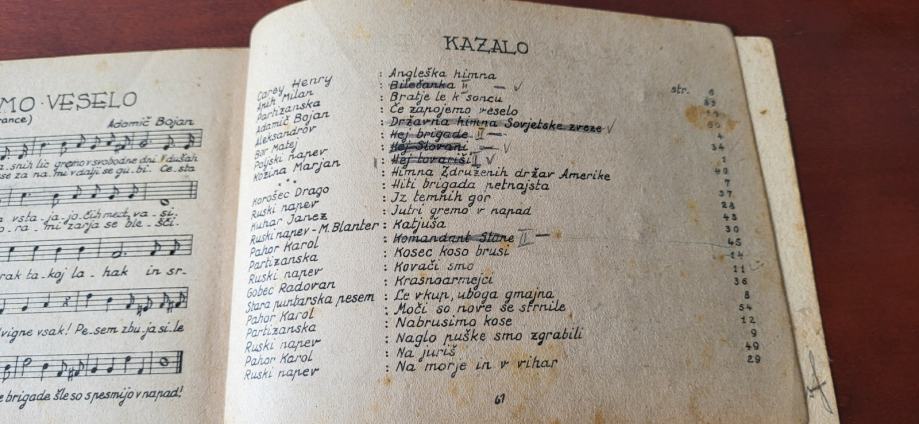 MO VESELO
rance) Adamič Bojan
a.snih lic gremo v svobodne dni. V dušah
se za na. mi v dalji se gu. bi. Ce.sta
a vsta - ja - jo. čih med. va - si.
o. ra. mi zarja se ble - šči.
rak ta. koj la - hak in sr-
vigne vsak! Pe.sem zbu.ja si.le
e brigade šle so s pesmijo v napad!
KAZALO
str.
Carey Henry : Angleška himna 6
Milan : Bilečanka II
Partizanska : Bratje le k soncu
Adamič Bojan : Če zapojemo veselo
Aleksandrov : Državna himna Sovjetske zveze 4
Bor Matej : Hej brigade II 34
Poljski napev : Hej Slovani 1
Kozina Marjan : Hej tovariši I 40
* * * : Himna Združenih držav Amerike 7
Korošec Drago : Hiti brigada petnajsta 37
Ruski napev : Iz temnih gor 28
Kuhar Janez : Jutri gremo v napad 43
Ruski napev - M. Blanter : Katjuša 30
Pahor Karol : Komandant Stane II 45
Partizanska : Kosec koso brusi 14
Ruski napev : Kovači smo 11
Gobec Radovan : Krasnoarmejci 36
Stara puntarska pesem : Le vkup, uboga gmajna 8
Pahor Karol : Moči so nove se strnile 54
Partizanska : Nabrusimo kose 12
Ruski napev : Naglo puške smo zgrabili 9
Pahor Karol : Na juriš 49
Ruski napev : Na morje in v vihar 29
61